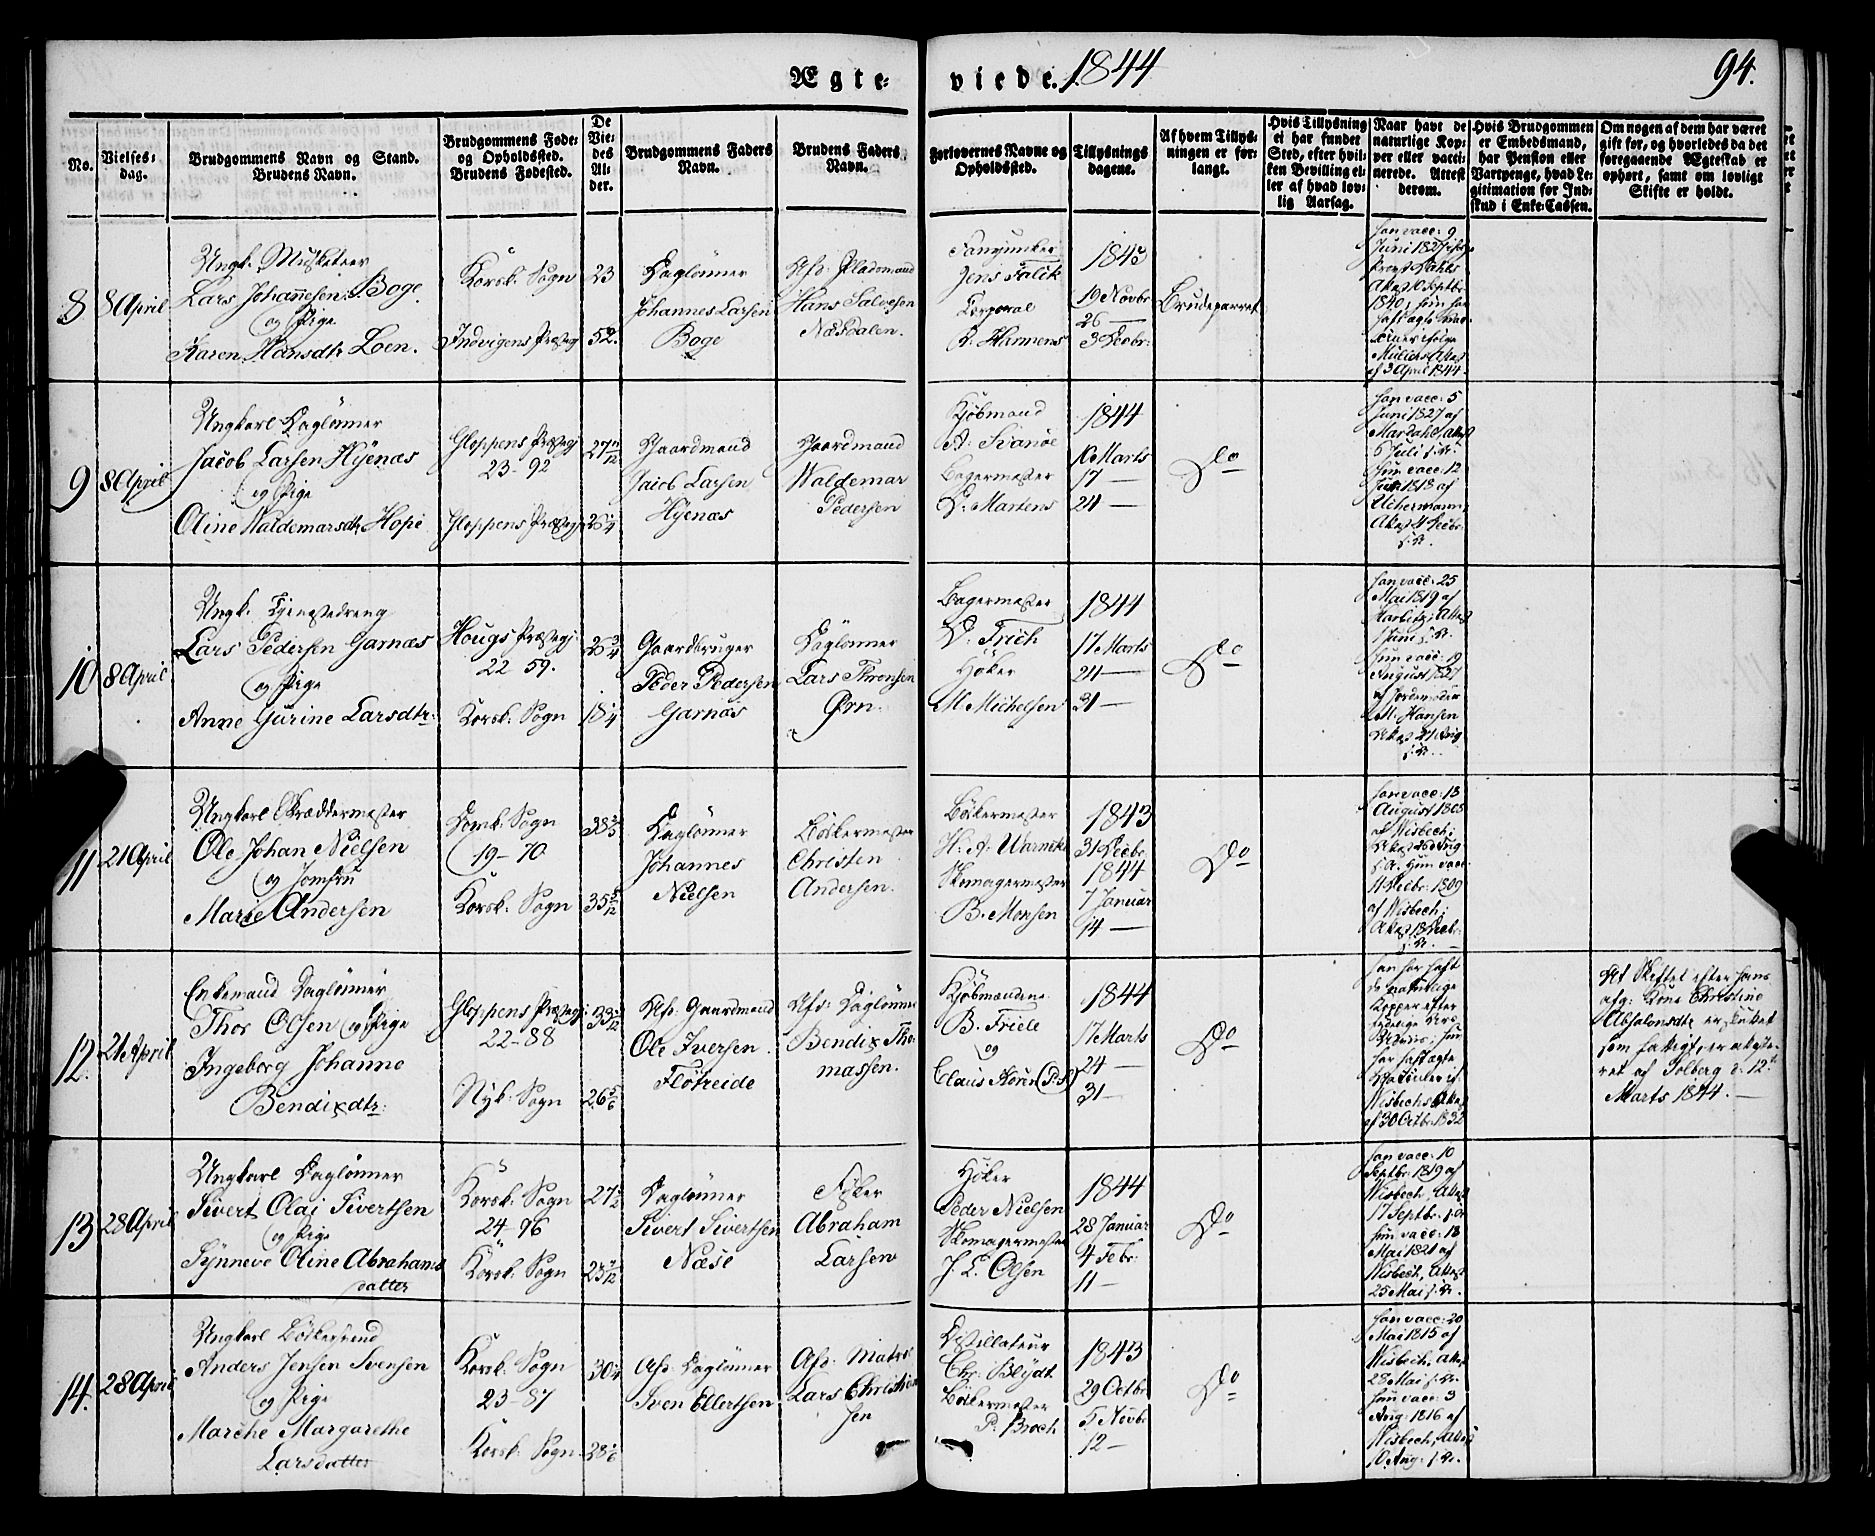 Ægte-
viede. 1844
94.
No.
Vielses-
dag.
Brudgommens Navn og Stand.
Brudens Navn.
Brudgommens Føde-
og Opholdssted.
Brudens Fødested.
De
Vie-
des
Al-
der.
Brudgommens Faders
Navn.
Brudens Faders
Navn.
Forlovernes Navne og
Opholdssted.
Tillysnings
dagene.
Af hvem Tillys-
ningen er for-
langt.
Hvis Tillysning
ei har fundet
Sted, efter hvil-
ken Bevilling el-
ler af hvad lov-
lig Aarsag.
Naar havt de
naturlige Kop-
per eller vacci-
nerede. Attest
derom.
Hvis Brudgommen
er Embedsmand,
har Pension eller
Vartpenge, hvad Le-
gitimation for Ind-
skud i Enke-Cassen.
Om nogen af dem har været
gift før, og hvorledes da det
foregaaende Ægteskab er
ophørt, samt om lovligt
Skifte er holdt.
8
8 April
Ungk. Musketeer
Lars Johannesen Boge
og Pige
Karen Hansdtr Loen.
Korsk: Sogn
Indvigens Præstegj
23
52
Daglønner
Johannes Larsen
Boge
Afd: Pladsmand
Hans Salvesen
Næsdalen.
Fanejunker
Jens Falck
Corporal
R. Hannens
1843
19 Novbr
26 —
3 Decbr:
Brudeparret
han vacc: 9
Juni 1827 ifølge
Provst Dahls
Attest
1840; hun har
haft ægte
ifølge
Attest
af 3 April 1844
9
8 April
Ungkarl Daglønner
Jacob Larsen Hyenæs
og Pige
Oline Waldemarsdtr Hope
Gloppens Præstegj
23-92
Gloppens Præstegj
27
Gaardmand
Jacob Larsen
Hyenæs
Gaardmand
Waldemar
Pedersen
Kjøbmand
A. Svanøe
Bagermester
D. Martens
1844
10 Marts
17 —
24 —
Do
han vacc: 5
Juni 1827 af
Mardahl Attest
5 Juli s: A.
hun vacc: 12
Juni 1818 af
Uchermann,
Attest 4 Decbr
s: A.
10
8 April
Ungk. Tjenestedreng
Lars Pedersen Garnæs
og Pige
Anne Gurine Larsdtr:
Hougs Præstegj:
22 59.
Korsk: Sogn
26 3/4
18 1/4
Gaardbruger
Peder Pedersen
Garnæs
Daglønner
Lars Thronsen
Ørn.
Bagermester
D. Frich
Høker
M. Michelsen
1844
17 Marts
24 —
31 —
Do
han vacc: 25
Mai 1819 af
Harbitz; Attest
1 Juni s: A.
hun vacc: 19
August 1827
af Jordemoder
M. Hansen
Attest 21 Aug
s: A.
11
21 April
Ungkarl Skræddermester
Ole Johan Nielsen
og Jomfru
Marie Andersen
Domk: Sogn
19-70
Korsk: Sogn
38
35
Daglønner
Johannes
Nielsen
Bødkermester
Christen
Andersen.
Bødkermester
H. A. Warncke
Skomagermester
B. Monsen
1843
31 Decbr
1844
7 Januar
14 —
Do
han vacc: 18
August 1808
af Wisbech;
Attest 26 Aug
s: A. hun vacc:
11 Decbr: 1809
af Wisbech;
Attest 18 Decbr:
s: A. —
12.
21 April
Enkemand Daglønner
Thor Olsen og Pige
Ingeborg Johanne
Bendixdtr:
Gloppens Præstegj:
22-88
Nyk: Sogn
33
26 5/6
Afd: Gaardmand
Ole Iversen
Flötreide
Afd: Daglønner
Bendix Tho-
massen.
Kjøbmændene
B. Friele
og
Claus Kören
1844
17 Marts
24 —
31 —
Do
han har haft
de naturlige
Kopper efter
tydelige
hun
har haft ægte
Wisbechs Attest
af 30 Octbr: 1832
At Skiftet efter hans
afg: Kone Christine
Absalonsdtr er sluttet
som fattigt, er attste-
ret af Solberg d: 12t
Marts 1844. —
13
28 April
Ungkarl Daglønner
Sivert Olai Sivertsen
og Pige
Synneve Oline Abrahams
datter
Korsk: Sogn
24-96
Korsk: Sogn
27
23
Daglønner
Sivert Sivertsen
Næse
Høker
Abraham
Larsen
Høker
Peder Nielsen
Skomagermester
J. E. Olsen
1844
28 Januar
4 Febr:
11 —
Do
han vacc: 10
Septbr: 1819 af
Wisbech, Attest
17 Septbr: s: A.
hun vacc: 18
Mai 1821 af
Wisbech, Attest
25 Mai s: A.
14.
28 April
Ungkarl Bødkersvend
Anders Jensen Svensen
og Pige
Marthe Margarethe
Larsdatter
Korsk: Sogn
23-87
Korsk: Sogn.
30 1/4
28
Afd: Daglønner
Sven Ellertsen
Afd: Matros
Lars Christian-
sen
Destillateur
Chr: Blydt
Bödkermester
P: Broch
1843
29 Octbr
5 Novbr
12 —
Do
han vacc: 20
Mai 1815 af
Wisbech, Attest
28 Mai s: A.
hun vacc: 3
Aug: 1816 af
Wisbech, Attest
10 Aug: s: A.